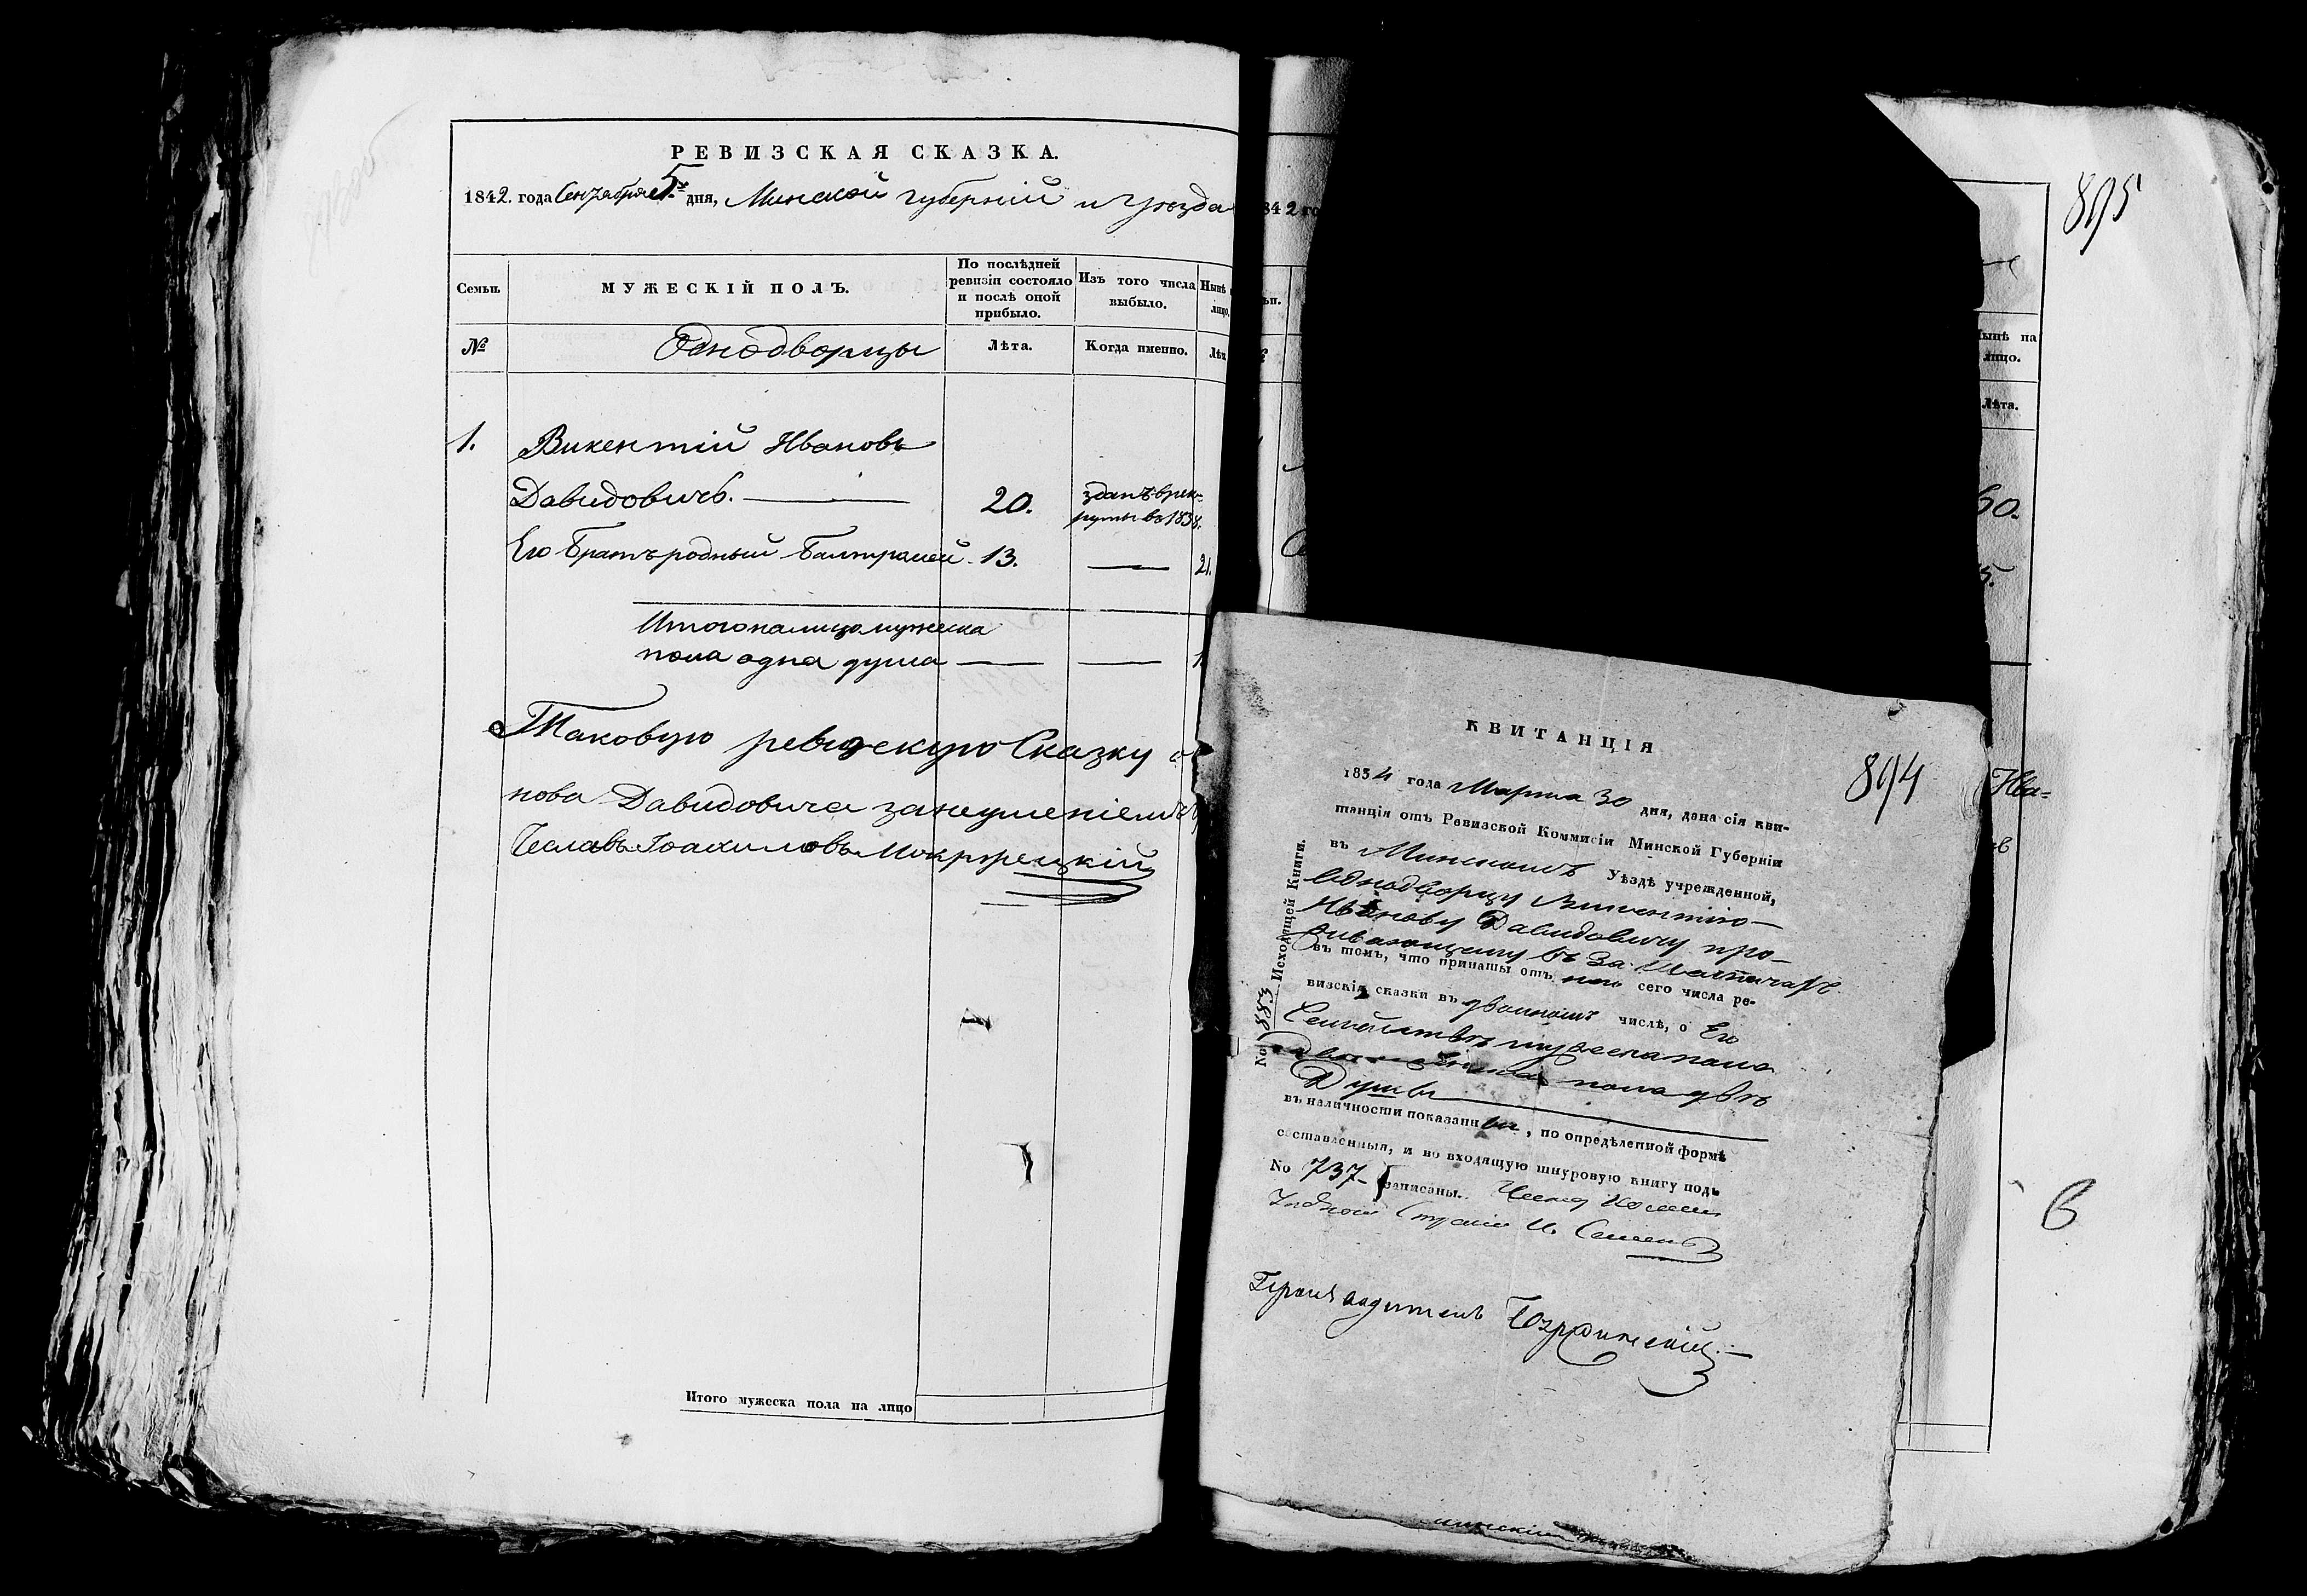 РЕВИЗСКАЯ СКАЗКА.
1842. года Сентября 5. дня, Минской губерніи и уѣзда
Семьи.
МУЖЕСКІЙ ПОЛЪ.
По послѣдней ревизіи состояло и послѣ оной прибыло.
Изъ того числа выбыло.
Нынѣ
лицо.
№
Однодворцы
Лѣта.
Когда именно.
1. Викентій Ивановъ
Давидовичъ. 20. зданъ в рек-
руты въ 183
Его братъ родный Балтрамей 13. — 21.
Итого на лицо мужеска
пола одна душа — — 1
Таковую ревизскую Сказку
нова Давидовича за неумѣніемъ
Чеславъ Іоахимовъ Мокржецкій
Итого мужеска пола на лицо
842 го
895
Нынѣ на
лицо.
Лѣта.
60.
5.
Ива=
въ
6
КВИТАНЦІЯ
894
1834 года Марта 30 дня, дана сія кви-
танція отъ Ревизской Коммисіи Минской Губерніи
въ Минскомъ Уѣздѣ учрежденной,
однодворцу Викентію
Иванову Давидовичу про-
живающему въ За.
въ томъ, что принашы отъ него сего числа ре-
визскія сказки въ двойномъ числѣ, о Его
Семействѣ мужеска пола
пола двѣ
Души
въ наличности показанны, по опредѣленной формѣ
составленныя, и во входящую шнуровую книгу подъ
No 737 записаны. Членъ
Производитель
No 883 Исходящей Книги.